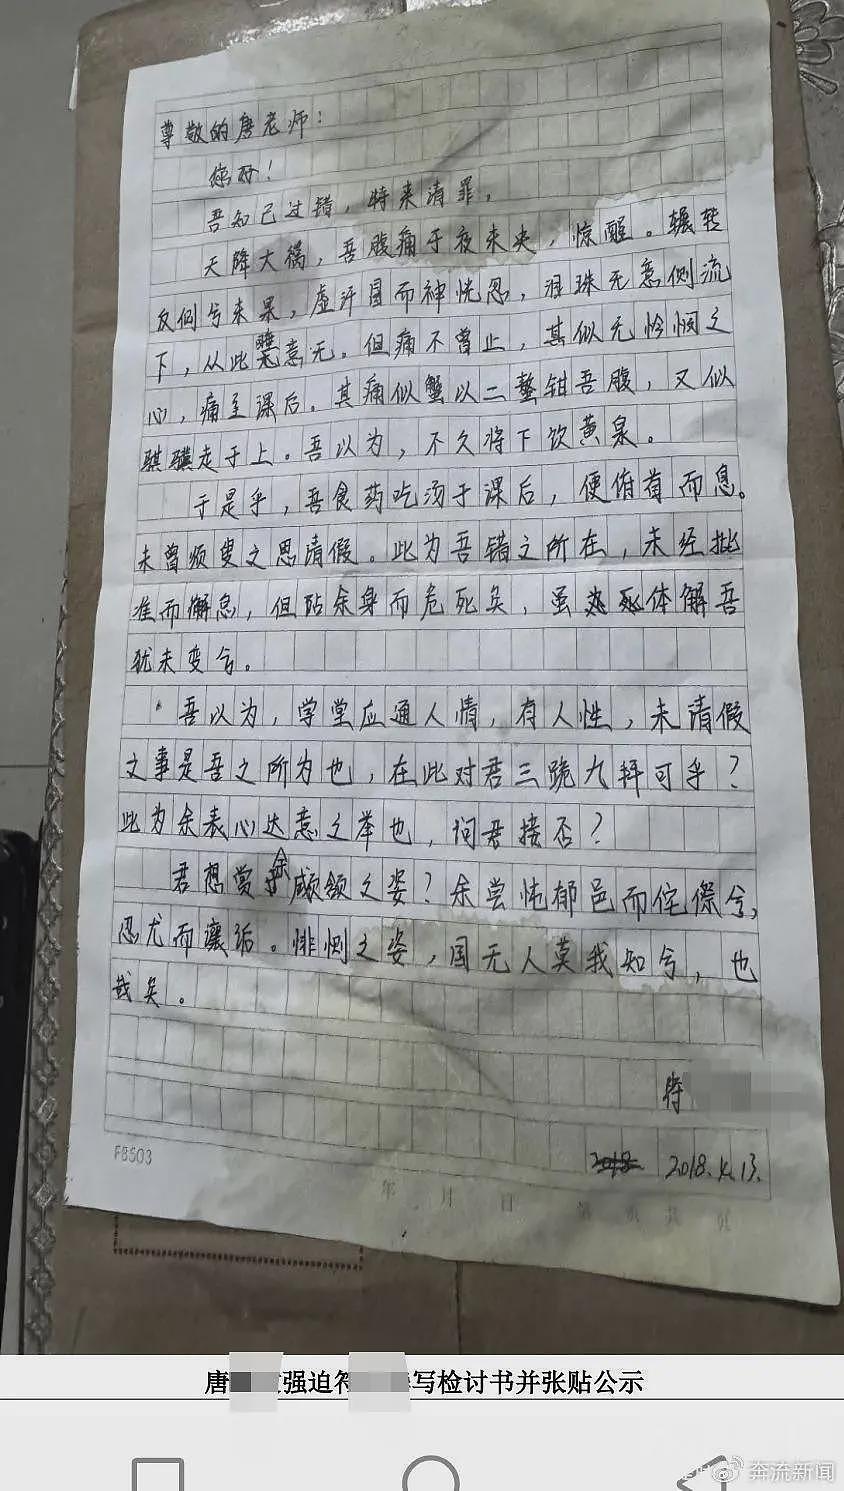 尊敬的唐老师：
您好！
吾知己过错，特来请罪，
天降大祸，吾腹痛于夜未央，惊醒。辗转
反侧兮未果，虚汗冒而神恍忽，泪珠无意侧流
下，从此意无。但痛不曾止，其似无怜悯之
心，痛至课后。其痛似蟹以二螯钳吾腹，又似
骐骥走于上。吾以为，不久将下饮黄泉。
于是乎，吾食药吃汤于课后，便俯首而息。
未曾须臾之思请假。此为吾错之所在，未经批
准而懈怠，但阽余身而危死矣，虽体解吾
犹未变兮。
吾以为，学堂应通人情，有人性，未请假
之事是吾之所为也，在此对君三跪九拜可乎？
此为余表心达意之举也，问君接否？
君想赏余顑颔之姿？余尝忳郁邑而侘傺兮，
忍尤而攘诟。悱恻之姿，国无人莫我知兮，也
哉矣。
符
2018.4.13.
F8503
年 月 日 第 页 共 页
唐强迫符写检讨书并张贴公示
奔流新闻